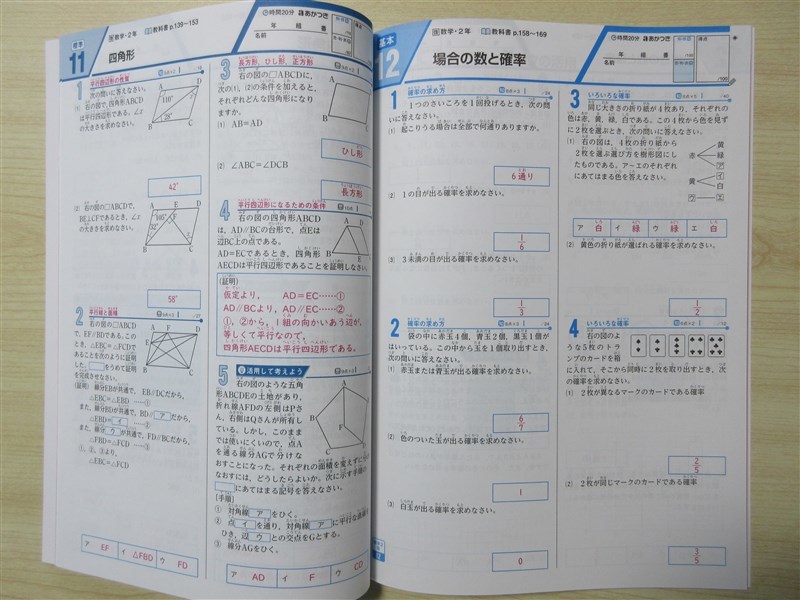 標準
11
四角形
数学・2年
教科書 p.139～153
時間20分
あかつき
年 組 番
名前
1
平行四辺形の性質
次の問いに答えなさい。
(1) 右の図で，四角形ABCD
は平行四辺形である。∠x
の大きさを求めなさい。
A
D
110°
28°
B
C
42°
(2) 右の図の□ABCDで，
BE⊥CFであるとき，∠x
の大きさを求めなさい。
58°
2
平行線と面積
右の図の□ABCD
で，EF//BDである。こ
のとき，△EBC=△FCDで
あることを次のように証明
した。 をうめて証明
を完成させなさい。
(証明) 線分EBが共通で，EB//DCだから，
△EBC=△EBD ……①
また，線分 ア が共通で，BD// ア だから，
△EBD= イ ……②
また，線分 ウ が共通で，FD//BCだから，
△FBD=△FCD ……③
①，②，③より，
△EBC=△FCD
ア EF イ △FBD ウ FD
3
長方形，ひし形，正方形
右の図の□ABCDに，
次の(1)，(2)の条件を加えると，
それぞれどんな四角形になり
ますか。
(1) AB=AD
ひし形
(2) ∠ABC=∠DCB
長方形
4
平行四辺形になるための条件
右の図の四角形ABCD
は，AD//BCの台形で，点Eは
辺BC上の点である。
AD=ECであるとき，四角形
AECDは平行四辺形であることを証明しなさい。
(証明)
仮定より， AD=EC……①
AD//BCより，AD//EC……②
①，②から，1組の向かいあう辺が，
等しくて平行なので，
四角形AECDは平行四辺形である。
5
活用して考えよう
右の図のような五角
形ABCDEの土地があり，
折れ線AFDの左側はPさ
ん，右側はQさんが所有し
ている。しかし，このまま
では使いにくいので，点A
を通る線分AGで分けな
おすことになった。それぞれの面積を変えずに分け
なおすには，どうしたらよいか。次に示す手順の
にあてはまる記号を答えなさい。
[手順]
① 対角線 ア をひく。
② 点 イ を通り，対角線 ア に平行な直線を
ひき，辺 ウ との交点をGとする。
③ 線分AGをひく。
ア AD イ F ウ CD
基本
12
場合の数と確率
数学・2年
教科書 p.158～169
時間20分
あかつき
年 組 番
名前
/100
1
確率の求め方
1つのさいころを1回投げるとき，次の問
いに答えなさい。
(1) 起こりうる場合は全部で何通りありますか。
6通り
(2) 1の目が出る確率を求めなさい。
1/6
(3) 3未満の目が出る確率を求めなさい。
1/3
2
確率の求め方
袋の中に赤玉4個，青玉2個，黒玉1個が
はいっている。この中から玉を1個取り出すとき，
次の問いに答えなさい。
(1) 赤玉または青玉が出る確率を求めなさい。
6/7
(2) 色のついた玉が出る確率を求めなさい。
1
(3) 白玉が出る確率を求めなさい。
0
3
いろいろな確率
同じ大きさの折り紙が4枚あり，それぞれの
色は赤，黄，緑，白である。この4枚から色を見ず
に2枚を選ぶとき，次の問いに答えなさい。
(1) 右の図は，4枚の折り紙から
2枚を選ぶ選び方を樹形図にし
たものである。ア～エのそれぞれ
にあてはまる色を答えなさい。
黄
赤 緑
ア
黄 イ
白
ウ エ
ア 白 イ 緑 ウ 緑 エ 白
(2) 黄色の折り紙が選ばれる確率を求めなさい。
1/2
4
いろいろな確率
右の図のよう
な5枚のトラ
ンプのカードを箱
に入れて，そこから同時に2枚を取り出すとき，次
の確率を求めなさい。
(1) 2枚が異なるマークのカードである確率
2/5
(2) 2枚が同じマークのカードである確率
3/5
12